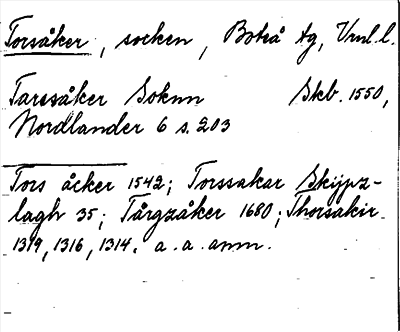 Torsåker, socken, Boteå tg, Vrnl.l.
Tarssåker Soknn Skb. 1550,
Nordlander 6 s. 203
Tors åcker 1542; Torssakar Skijpz-
lagh 35; Tårgzåker 1680; Thorsakir
1319, 1316, 1314. a. a. ann.